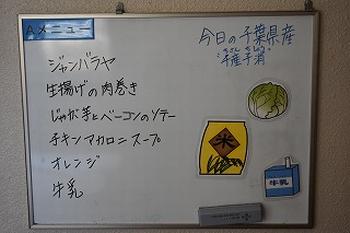 Aメニュー
ジャンバラヤ
生揚げの肉巻き
じゃが芋とベーコンのソテー
チキンマカロニスープ
オレンジ
牛乳
今日の千葉県産
ちさん ちしょう
千産千消
米
牛乳